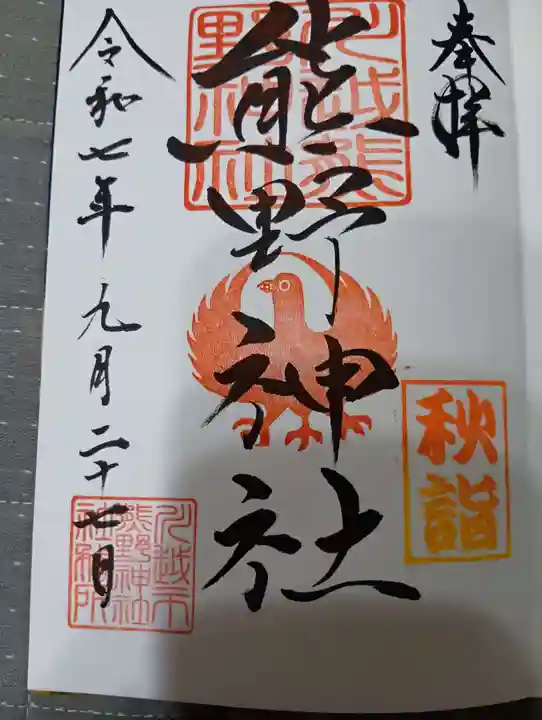 奉拝
川越熊野神社
熊野神社
秋詣
令和七年九月二十七日
川越市
熊野神社
社務所